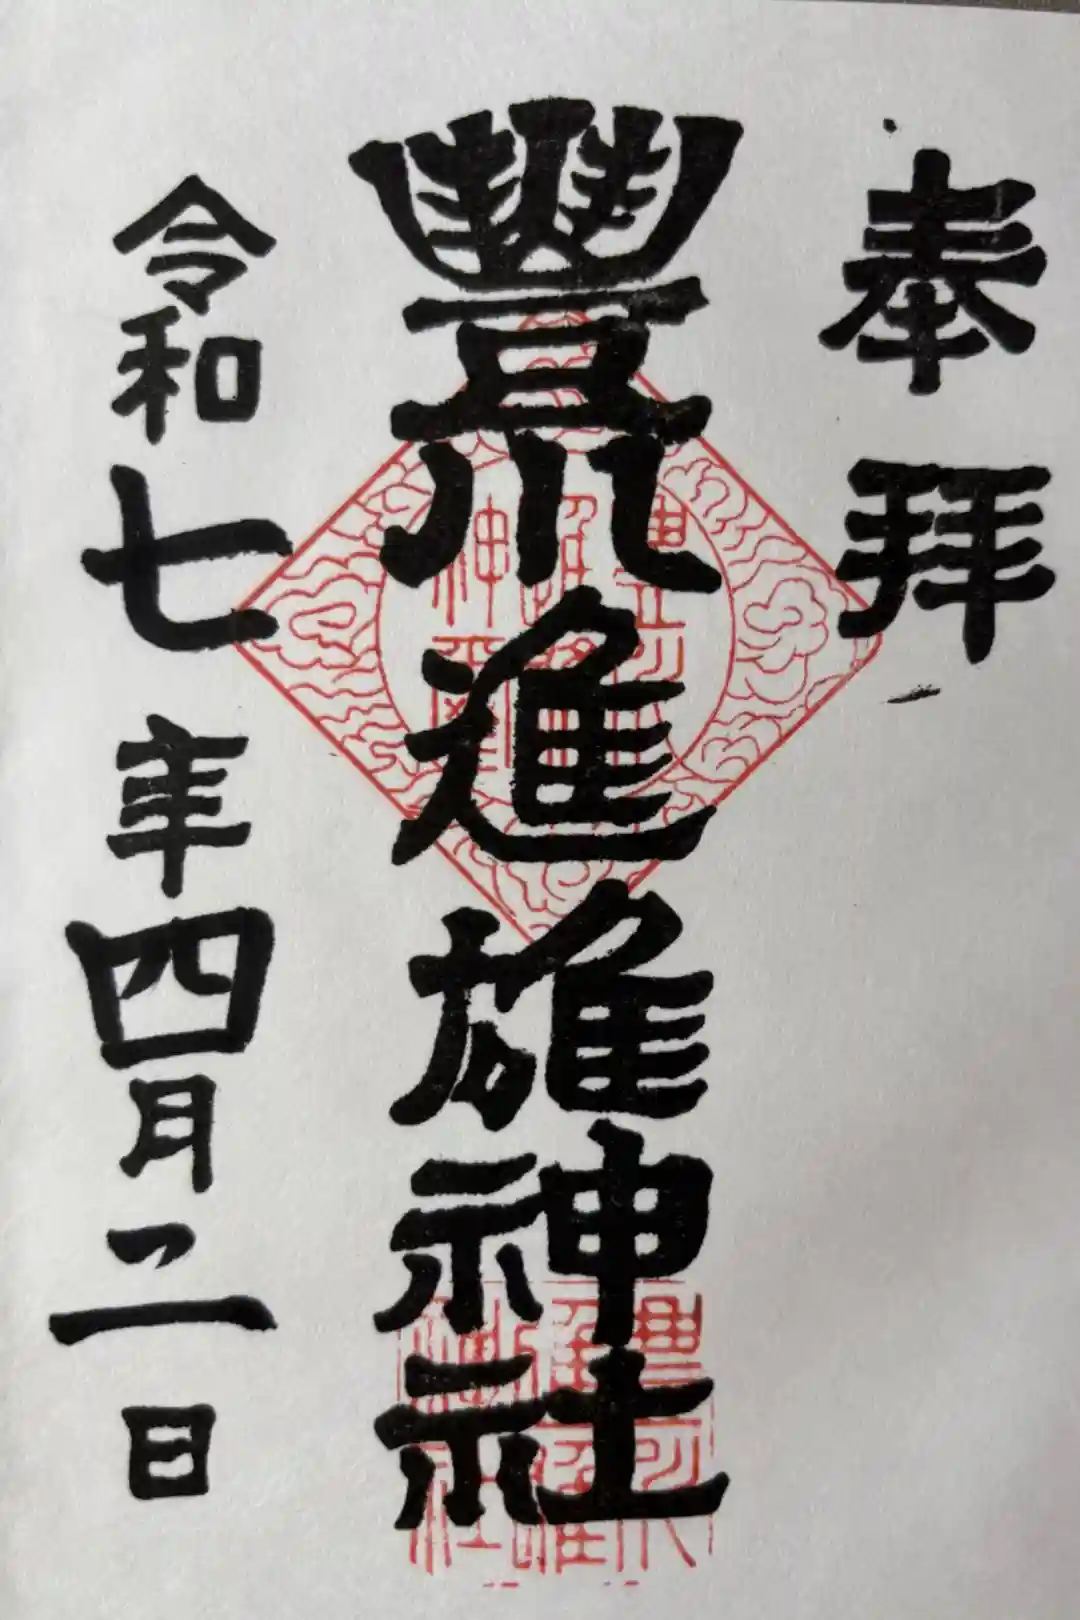 奉拝
豐川進雄神社
令和七年四月二日